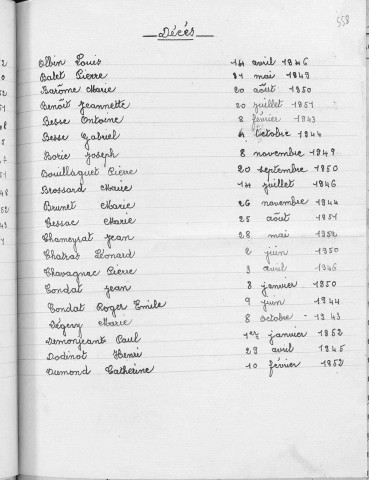 558
Décès
Albin Louis 14 avril 1946
Balet Pierre 31 mai 1949
Barôme Marie 20 août 1950
Benoît Jeannette 20 juillet 1951
Besse Antoine 8 février 1943
Besse Gabriel 4 octobre 1944
Borie Joseph 8 novembre 1949
Bouillaguet Pierre 20 septembre 1950
Brossard Marie 14 juillet 1946
Brunet Marie 26 novembre 1944
Cessac Marie 25 août 1951
Chameyrat Jean 28 mai 1952
Chatras Léonard 2 juin 1950
Chavagnac Pierre 3 avril 1946
Condat Jean 8 janvier 1950
Condat Roger Emile 9 juin 1944
Dégery Marie 8 octobre 1943
Demonjeant Paul 1er janvier 1952
Dodinot Henri 29 avril 1945
Dumond Catherine 10 février 1952